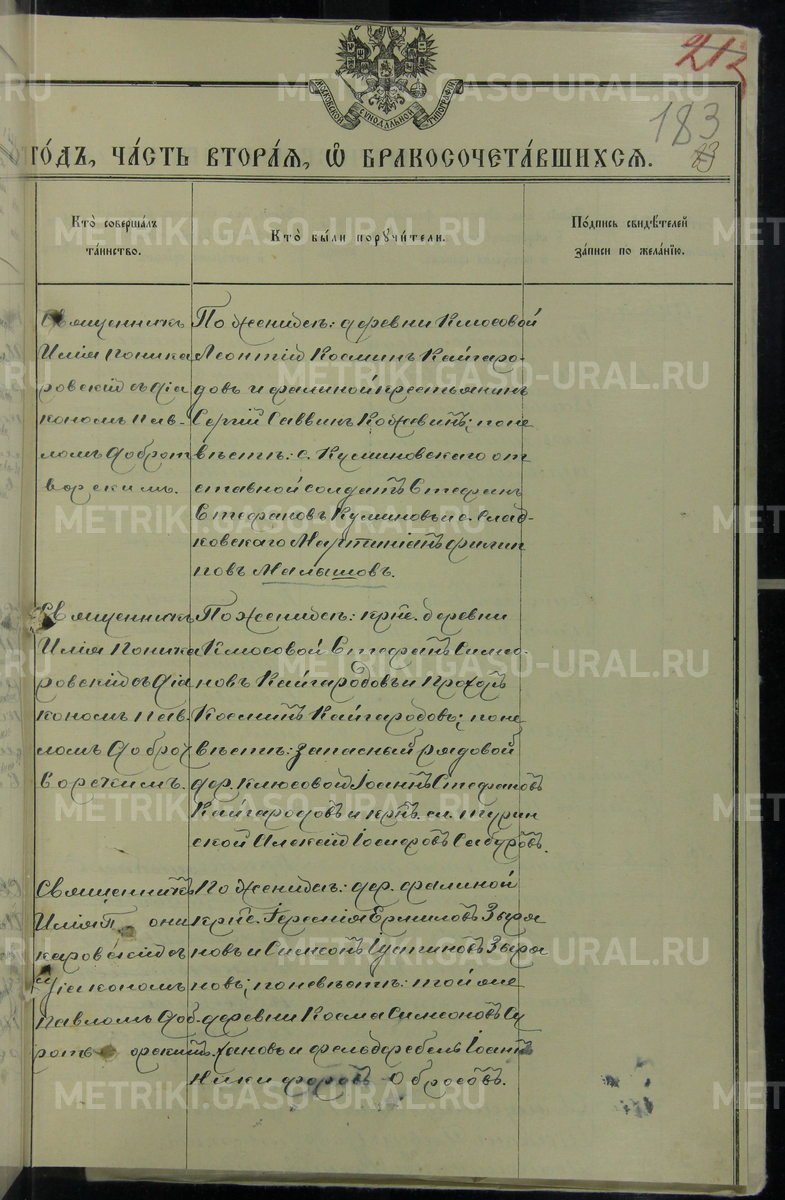 213
183
МОСКОВСКОЙ СѴНОДАЛЬНОЙ ТИПОГРАФІИ
ГО́ДЪ, ЧА́СТЬ ВТОРА́Я, Ѡ҆ БРАКОСОЧЕТА́ВШИХСЯ.
Кто̀ соверша́лъ
та́инство.
Кто̀ бы́ли порꙋчи́тели.
По́дпись свидѣ́телей
за́писи по жела́нїю.
Священникъ
Илія Поника
ровскій съ діа
кономъ Пав-
ломъ Доброт
ворскимъ.
По женихѣ: деревни Клюсовой
Леонтій Космин Кайгаро-
довъ и Фалиной крестьянинъ
Сергій Саввин; по не
вѣстѣ: с. Куминовскаго от
ставной солдатъ Стефанъ
Стефановъ Куминовъ и с. Слад-
ковскаго Мартиніанъ Филип
повъ Малышовъ.
Священникъ
Илія Поника
ровскій съ діа
кономъ Пав
ломъ Доброт
ворскимъ.
По женихѣ: крне. деревни
Клюсовой Стефанъ Симео-
новъ Кайгародовъ и Прохоръ
Косминъ Кайгародовъ; по не
вѣстѣ: запасный рядовой
дер. Клюсовой Іоаннъ Стефановъ
Кайгародовъ и крнъ сл. Турин
ской Алексій Іосифовъ Сабуровъ.
Священникъ
Илія Пони
каровскій съ
діакономъ
Павломъ Доб-
ротворскимъ.
По женихѣ: дер. Фалиной
крне. Іеремія Ермиловъ Зыря
новъ и Симеонъ Іустиновъ Зыря
новъ; по невѣстѣ: той же
деревни Косма Симеоновъ Су
хановъ и фельдфебель Іоаннъ
Никифоровъ Обросовъ.
METRIKI.GASO-URAL.RU